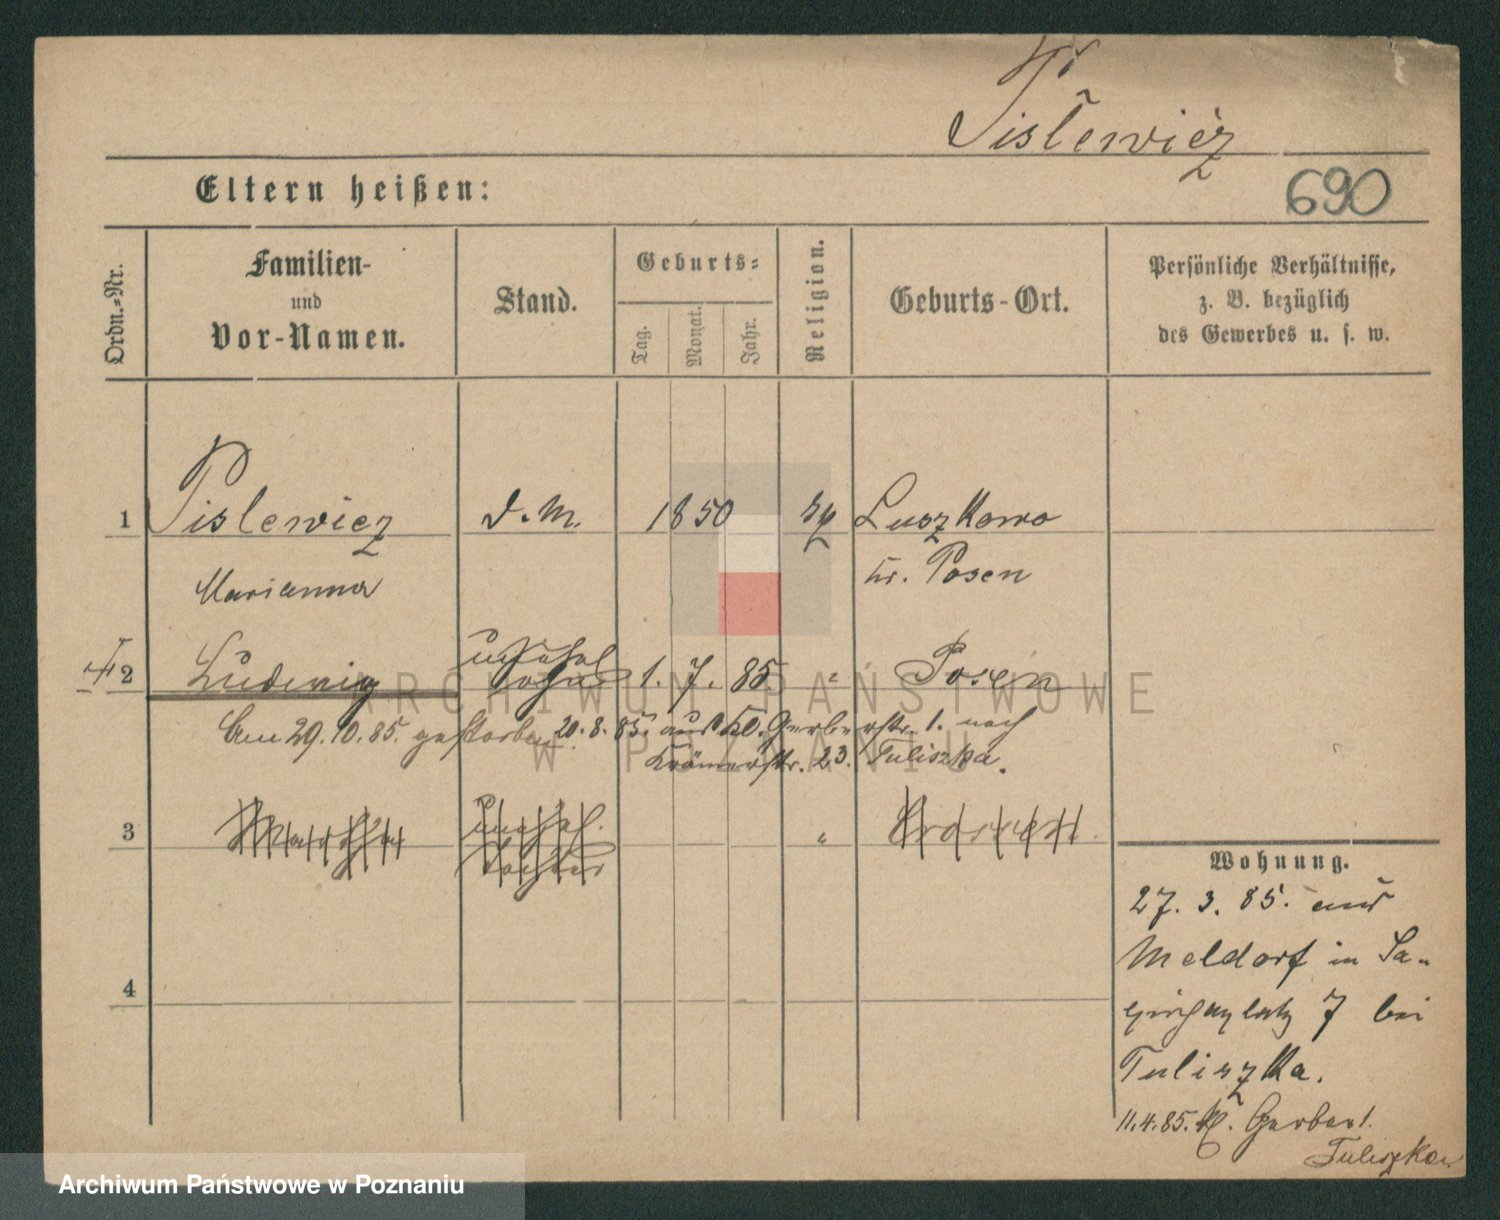 Pislewicz
690
Eltern heißen:
Ordn.-Nr.
Familien-
und
Vor-Namen.
Stand.
Geburts-
Tag.
Monat.
Jahr.
Religion.
Geburts-Ort.
Persönliche Verhältnisse,
z. B. bezüglich
des Gewerbes u. s. w.
1 Pislewicz D. M. 1850 Luszkowo
Marianna Kr. Posen
2 Ludwig unehel 1. 7. 85. " Posen
Sohn
Am 29.10.85. gestorben 20.8.85. aus Kl. Gerberstr. 1. nach
Krämerstr. 23. Tuliszka.
3 unehel. "
Tochter
4
Wohnung.
27. 3. 85. aus
Meldorf in Sa-
piehaplatz 7 bei
Tuliszka.
11.4.85. Kl. Gerber 1.
Tuliszka
ARCHIWUM PAŃSTWOWE
W POZNANIU
Archiwum Państwowe w Poznaniu